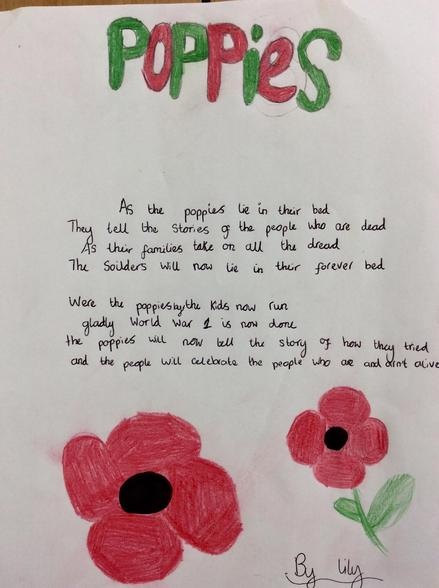 POPPieS
As the poppies lie in their bed
They tell the stories of the people who are dead
As their families take on all the dread
The Soilders will now lie in their forever bed
Were the poppies by the kids now run
gladly World War 1 is now done
the poppies will now tell the story of how they tried
and the people will celebrate the people who are and arint alive
By Lily